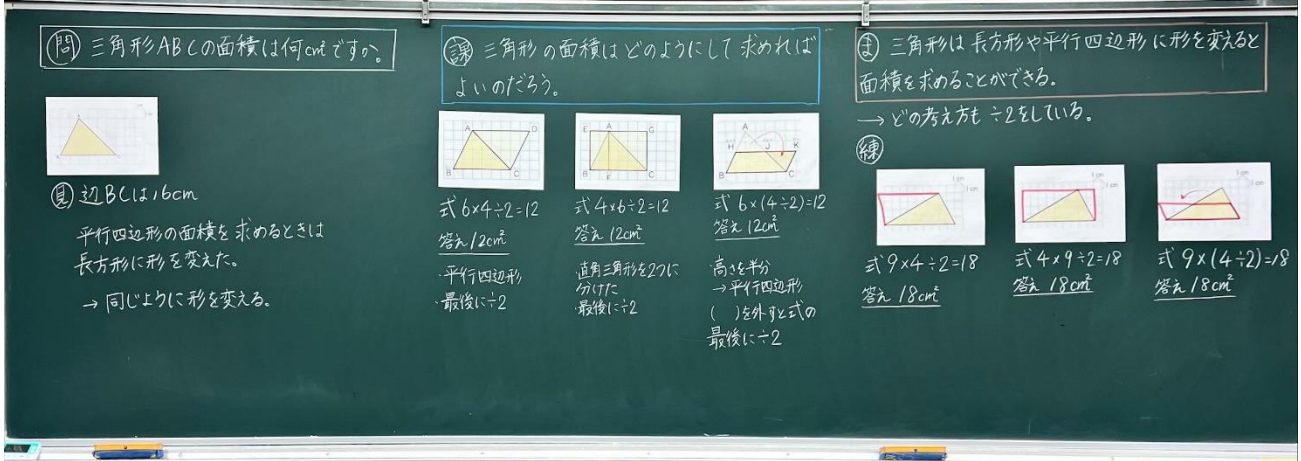 問 三角形ABCの面積は何cm²ですか。
見 辺BCは6cm
平行四辺形の面積を求めるときは
長方形に形を変えた。
→ 同じように形を変える。
課 三角形の面積はどのようにして求めれば
よいのだろう。
A D
B C
式 6×4÷2=12
答え 12cm²
・平行四辺形
・最後に÷2
E A G
B F C
式 4×6÷2=12
答え 12cm²
・直角三角形を2つに
分けた
・最後に÷2
A
H J K
B C
式 6×(4÷2)=12
答え 12cm²
・高さを半分
→平行四辺形
( )を外すと式の
最後に÷2
ま 三角形は長方形や平行四辺形に形を変えると
面積を求めることができる。
→ どの考え方も÷2をしている。
練
1cm
1cm
式 9×4÷2=18
答え 18cm²
1cm
1cm
式 4×9÷2=18
答え 18cm²
1cm
1cm
式 9×(4÷2)=18
答え 18cm²